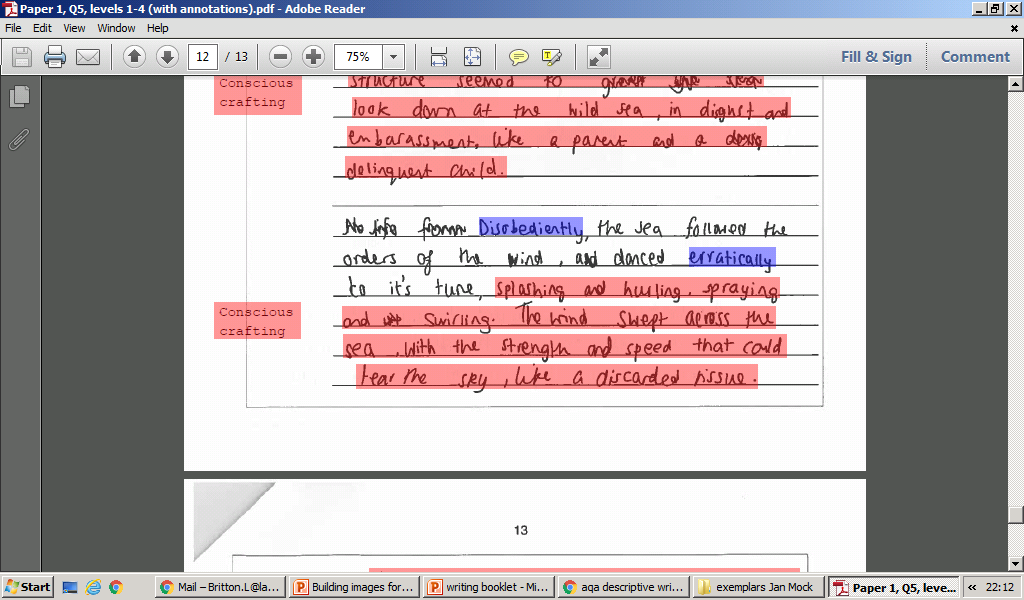 Paper 1, Q5, levels 1-4 (with annotations).pdf - Adobe Reader
File Edit View Window Help
12 / 13 75% Fill & Sign Comment
Conscious
crafting
structure seemed to
look down at the wild sea, in disgust and
embarassment, like a parent and a
delinquent child.
No info from Disobediently, the sea followed the
orders of the wind, and danced erratically
to it's tune, splashing and hurling, spraying
Conscious
crafting
and swirling. The wind swept across the
sea, with the strength and speed that could
tear the sky, like a discarded tissue.
13
Start Mail – Britton.L@la... Building images for... writing booklet - Mi... aqa descriptive wri... exemplars Jan Mock Paper 1, Q5, leve... « 22:12